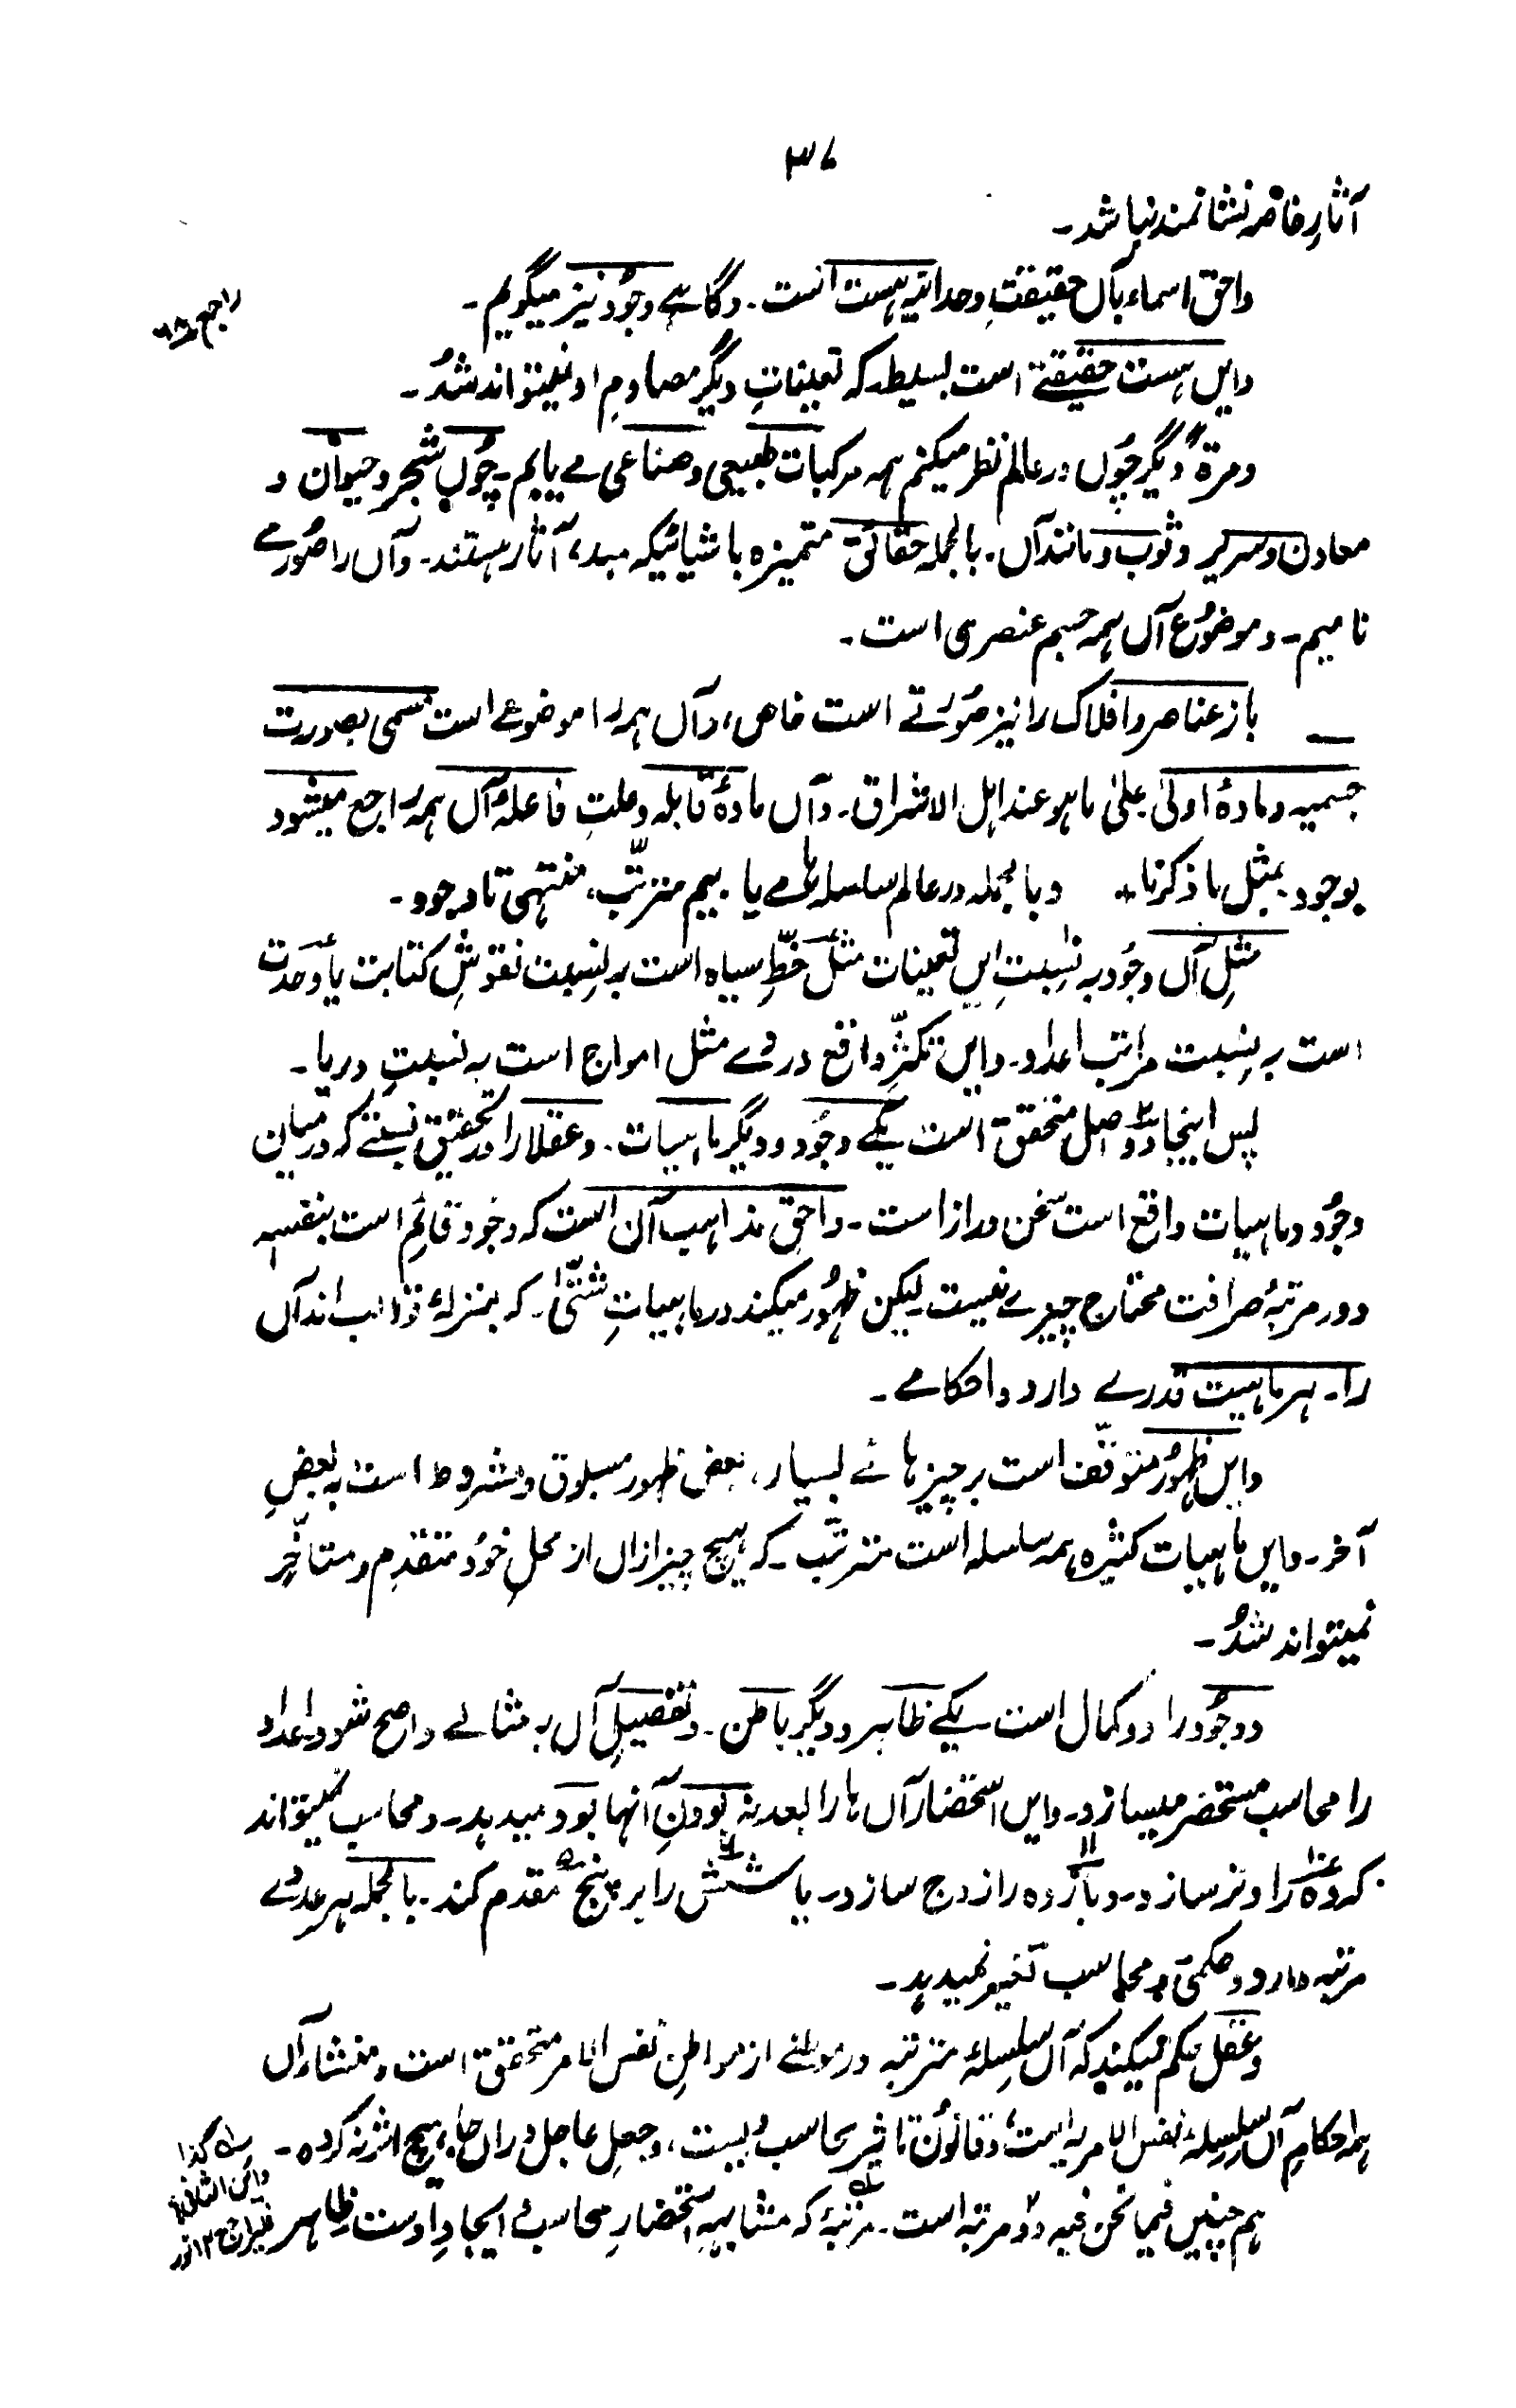 ۳۷
آثارِ خاصہ نشانمند نباشد۔
واحق اسماء بآں حقیقتِ وحدانیہ ہست است۔ و گاہے وجُود نیز میگویم۔
راجع
وایں ہست حقیقتے است بسیطہ کہ تعینات دیگر مصادمِ او نمیتواند شدُ۔
ومرۃً دیگر چُوں در عالم نظر میکنم ہمہ مرکبات طبیعی و صناعی مے یابم۔ چُوں شجر و حیوان و
معادن و سریر و ثوب و مانند آں۔ بالجملہ حقائق متمیزہ باشیائیکہ مبدء آثار ہستند۔ وآں را صُورے
نامیم۔ و موضوُع آں ہمہ جسم عنصری است۔
باز عناصر و افلاک را نیز صُورتے است خاص، وآں ہمہ را موضوعے است مسمی بصورت
جسمیہ و مادۂ اولیٰ علیٰ ما ہو عند اہل الاشراق۔ وآں مادۂ قابلہ و علتِ فاعلۂ آں ہمہ راجع میشود
بوجود بمثل ما ذکرنا۔ و بالجملہ در عالم سلسلہ ہا مے یابیم مترتّب، منتہی تا وجود۔
مثلِ آں وجُود بہ نسبتِ ایں تعینات مثل خطِّ سیاہ است بہ نسبت نقوشِ کتابت یا وَحدت
است بہ نسبت مراتب اعداد۔ وایں تکثّرِ واقع در وے مثل امواج است بہ نسبتِ دریا۔
پس اینجا دوُ اصل متحقق است یکے وجُود و دیگر ماہیات۔ وعقلا را در تحقیق نسبتے کہ درمیان
وجُود و ماہیات واقع است سخن دراز است۔ واحقِ مذاہب آن است کہ وجُود قائم است بنفسہٖ
و در مرتبۂ صرافت محتاج چیزے نیست۔ لیکن ظہُور میکند در ماہیاتِ شتّیٰ۔ کہ بمنزلۂ قوالب اند آں
را۔ ہر ماہیت قدرے دارد و احکامے۔
وایں ظہُور متوقّف است بر چیزہائے بسیار، بعض ظہور مسبوق و مشروط است بہ بعضِ
آخر۔ وایں ماہیات کثیرہ ہمہ سلسلہ است مترتّب۔ کہ ہیچ چیز ازاں از محلِ خوُد متقدِم و متاخّر
نمیتواند شدُ۔
و وجُود را دو کمال است۔ یکے ظاہر و دیگر باطن۔ و تفصیلِ آں بہ مثالے واضح شود۔ اعداد
را محاسب مستحضر میسازد۔ وایں استحضار آں ہا را بعد نہ بوُدنِ آنہا بوُد میدہد۔ و محاسب نمیتواند
کہ دہ را وتر سازد۔ و یازدہ را زوج سازد۔ یا شش را بر پنج مقدم کند۔ بالجملہ ہر عددے
مرتبہ دارد و حکمیّ و محاسب تغییر نمیدہد۔
وعقل حکم میکند کہ آں سلسلۂ مترتبہ در موطنے از مواطنِ نفس الامر متحقق است و منشاء آں
ہمہ احکام آں سلسلۂ نفس الامریہ است، و قانوُن تاثیر محاسب نیست، و جعلِ جاعل دراں جا ہیچ اثر نہ کردہ۔
ہم چنیں فیما نحن فیہ دوُ مرتبہ است۔ مرتبۂ کہ مشابہِ استحضارِ محاسب ایجادِ اوست ظاہر
کذا